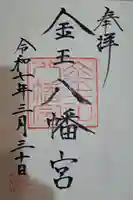 奉拝
金王八幡宮
令和七年三月三十日